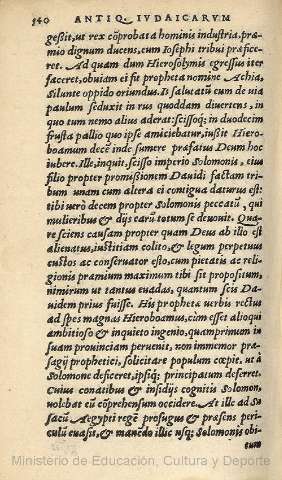 540 ANTIQ. IVDAICARVM
gessit, ut rex cõprobata hominis industria, præ-
mio dignum ducens, eum Iosephi tribui præfice-
ret. Ad quam dum Hierosolymis egressus iter
faceret, obuiam ei fit propheta nomine Achia,
Silunte oppido oriundus. Is salutatũ eum de uia
paulum seduxit in rus quoddam diuertens, in
quo tum nemo alius aderat: scissoq; in duodecim
frusta pallio quo ipse amiciebatur, iussit Hiero-
boamum decẽ inde sumere præfatus Deum hoc
iubere. Ille, inquit, scisso imperio Solomonis, eius
filio propter promissionem Dauidi factam tri-
bum unam cum altera ei contigua daturus est:
tibi uerò decem propter Solomonis peccatũ, qui
mulieribus & dijs earũ totum se deuouit. Qua-
re sciens causam propter quam Deus ab illo est
alienatus, iustitiam colito, & legum perpetuus
custos ac conseruator esto, cum pietatis ac reli-
gionis præmium maximum tibi sit propositum,
nimirum ut tantus euadas, quantum scis Da-
uidem prius fuisse. His prophetæ uerbis rectus
ad spes magnas Hieroboamus, cùm esset alioqui
ambitioso & inquieto ingenio, quamprimum in
suam prouinciam peruenit, non immemor præ-
sagij prophetici, solicitare populum cœpit, ut à
Solomone deficeret, ipsiq; principatum deferret.
Cuius conatibus & insidijs cognitis Solomon,
uolebat eũ cõprehensum occidere. At ille ad Su-
sacũ Aegypti regẽ profugus & præsens peri-
culũ euasit, & manẽdo illic usq; Solomonis obi-
tum
Ministerio de Educación, Cultura y Deporte